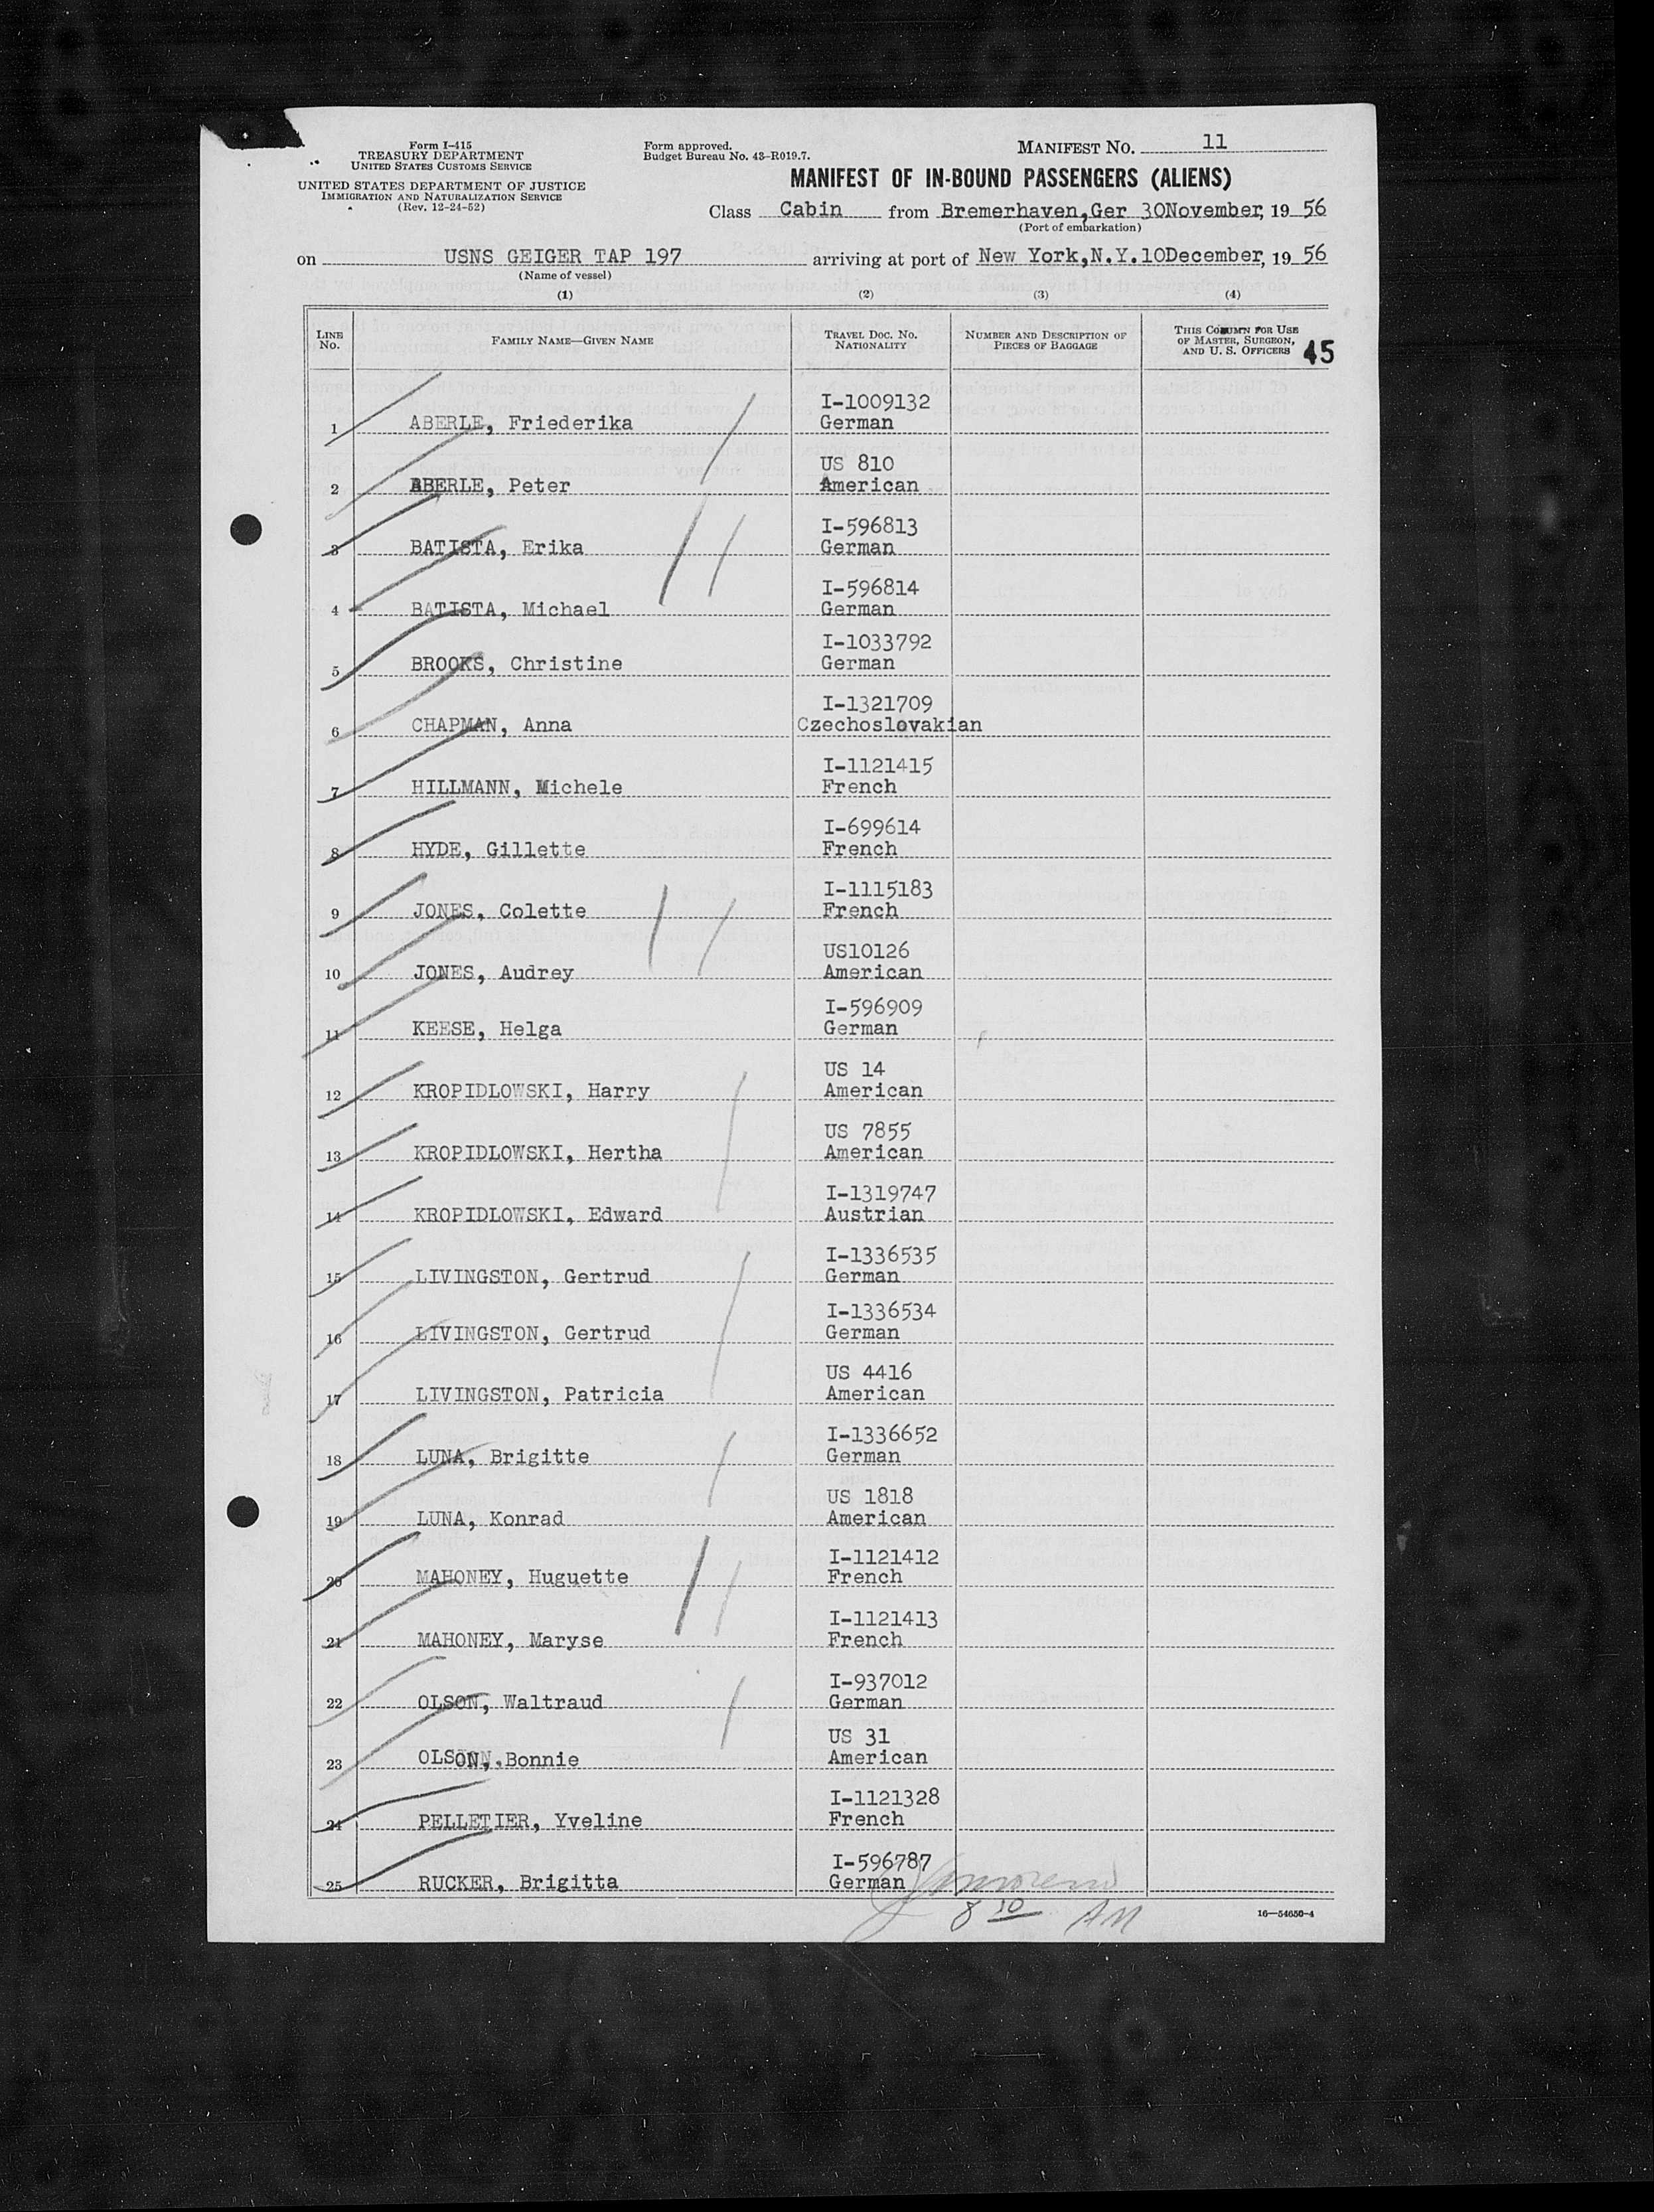 Form I-415
TREASURY DEPARTMENT
UNITED STATES CUSTOMS SERVICE
UNITED STATES DEPARTMENT OF JUSTICE
IMMIGRATION AND NATURALIZATION SERVICE
(Rev. 12-24-52)
Form approved.
Budget Bureau No. 43-R019.7.
MANIFEST NO. 11
MANIFEST OF IN-BOUND PASSENGERS (ALIENS)
Class Cabin from Bremerhaven,Ger 30November, 19 56
(Port of embarkation)
on USNS GEIGER TAP 197 arriving at port of New York,N.Y.10December, 19 56
(Name of vessel)
(1) (2) (3) (4)
LINE NO. FAMILY NAME—GIVEN NAME TRAVEL DOC. NO. NATIONALITY NUMBER AND DESCRIPTION OF PIECES OF BAGGAGE THIS COLUMN FOR USE OF MASTER, SURGEON, AND U. S. OFFICERS 45
I-1009132
1 ABERLE, Friederika German
US 810
2 ABERLE, Peter American
I-596813
3 BATISTA, Erika German
I-596814
4 BATISTA, Michael German
I-1033792
5 BROOKS, Christine German
I-1321709
6 CHAPMAN, Anna Czechoslovakian
I-1121415
7 HILLMANN, Michele French
I-699614
8 HYDE, Gillette French
I-1115183
9 JONES, Colette French
US10126
10 JONES, Audrey American
I-596909
11 KEESE, Helga German
US 14
12 KROPIDLOWSKI, Harry American
US 7855
13 KROPIDLOWSKI, Hertha American
I-1319747
14 KROPIDLOWSKI, Edward Austrian
I-1336535
15 LIVINGSTON, Gertrud German
I-1336534
16 LIVINGSTON, Gertrud German
US 4416
17 LIVINGSTON, Patricia American
I-1336652
18 LUNA, Brigitte German
US 1818
19 LUNA, Konrad American
I-1121412
20 MAHONEY, Huguette French
I-1121413
21 MAHONEY, Maryse French
I-937012
22 OLSON, Waltraud German
US 31
23 OLSON, Bonnie American
I-1121328
24 PELLETIER, Yveline French
I-596787
25 RUCKER, Brigitta German
8 10 AM
16—54650-4